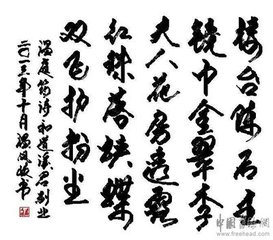 楼台陈后主
镜中金翠李
夫人花房透露
红珠落蛱蝶
双飞护粉尘
温庭筠诗和道溪君别业
二〇一三年十月温书
www.freehead.com